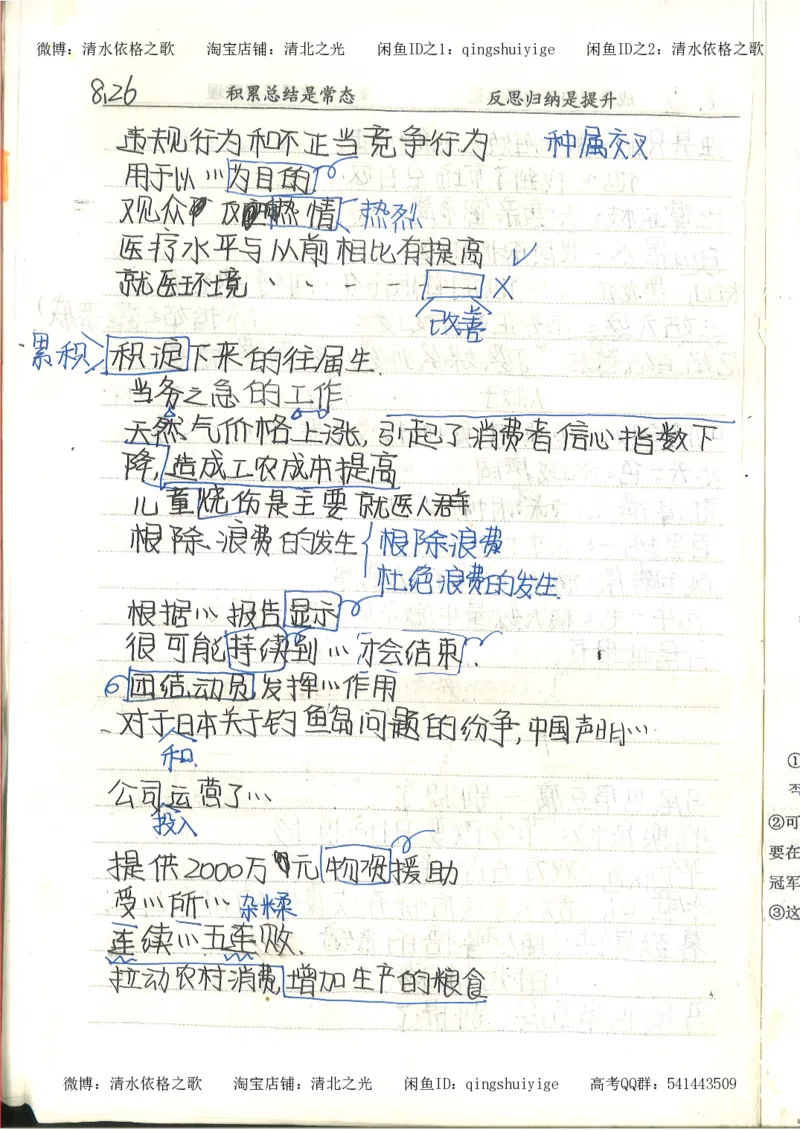 微博：清水依格之歌 淘宝店铺：清北之光 闲鱼ID之1：qingshuiyige 闲鱼ID之2：清水依格之歌
8.26 积累总结是常态 反思归纳是提升
违规行为和不正当竞争行为 种属交叉
用于以…为目的
观众 反应热情 热烈
医疗水平与从前相比有提高 ✓
就医环境 · · - - — — X
改善
累积 积淀下来的往届生.
当务之急的工作
天然气价格上涨,引起了消费者信心指数下
降,造成工农成本提高
儿童烧伤是主要就医人群
根除浪费的发生 { 根除浪费
杜绝浪费的发生.
根据…报告显示
很可能持续到…才会结束.
团结、动员发挥…作用
对于日本关于钓鱼岛问题的纷争,中国声明…
和
公司运营了…
投入
提供2000万元物资援助
受…所… 杂糅
连续…五连败.
拉动农村消费,增加生产的粮食
①
②可
要在
冠军
③这
微博：清水依格之歌 淘宝店铺：清北之光 闲鱼ID：qingshuiyige 高考QQ群：541443509